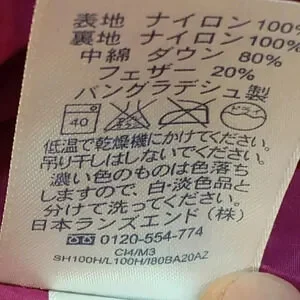 表地 ナイロン 100%
裏地 ナイロン 100%
中綿 ダウン 80%
フェザー 20%
バングラデシュ製
40 ドライ
低温で乾燥機にかけてください。
吊り干しはしないでください。
濃い色のものは色落ち
しますので、白・淡色品と
分けて洗ってください。
日本ランズエンド(株)
0120-554-774
CI4/M3
SH100H/L100H/I80BA20AZ